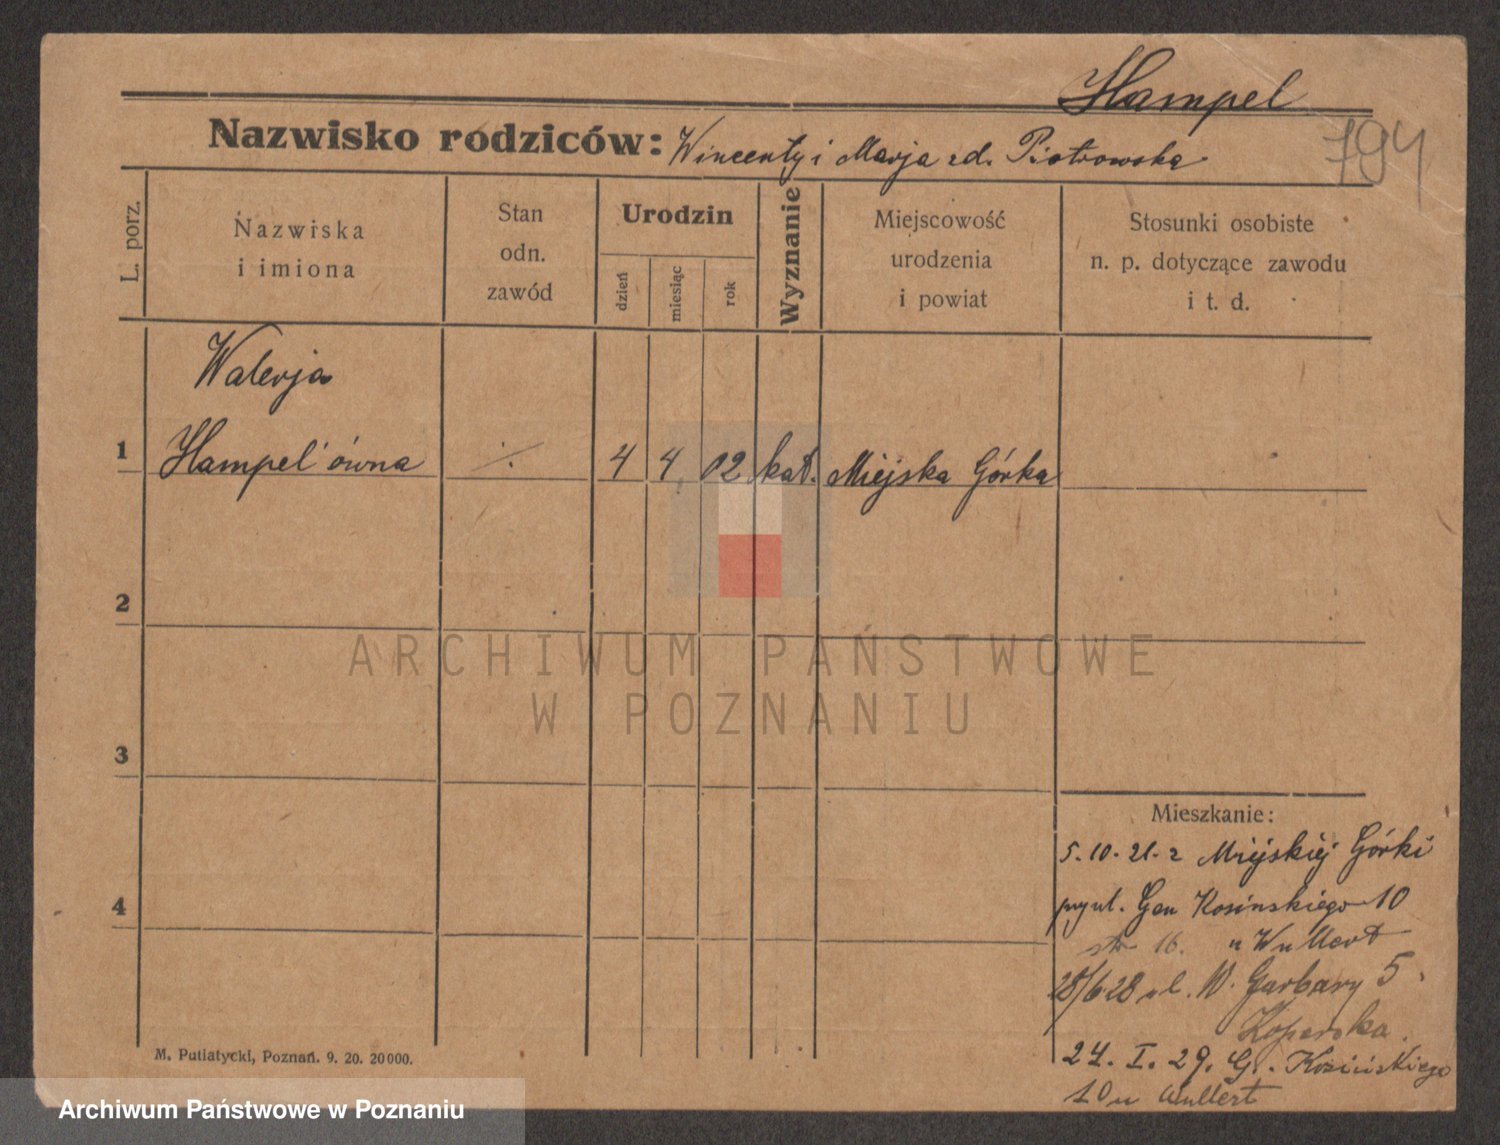 Hampel
794
Nazwisko rodziców: Wincenty i Marja zd. Piotrowska
L. porz.
Nazwiska
i imiona
Stan
odn.
zawód
Urodzin
dzień
miesiąc
rok
Wyznanie
Miejscowość
urodzenia
i powiat
Stosunki osobiste
n. p. dotyczące zawodu
i t. d.
Walerja
1 Hampel'ówna ·/. 4 4 02 kat. Miejska Górka
2
ARCHIWUM PAŃSTWOWE
W POZNANIU
3
4
Mieszkanie:
5.10.21. z Miejskiej Górki
Gen Kosińskiego 10
str 16. u Wullert
28/6 28 ul. W. Garbary 5
Koperska
24. I. 29. G. Kosińskiego
10 u Wullert
M. Putiatycki, Poznań. 9. 20. 20000.
Archiwum Państwowe w Poznaniu